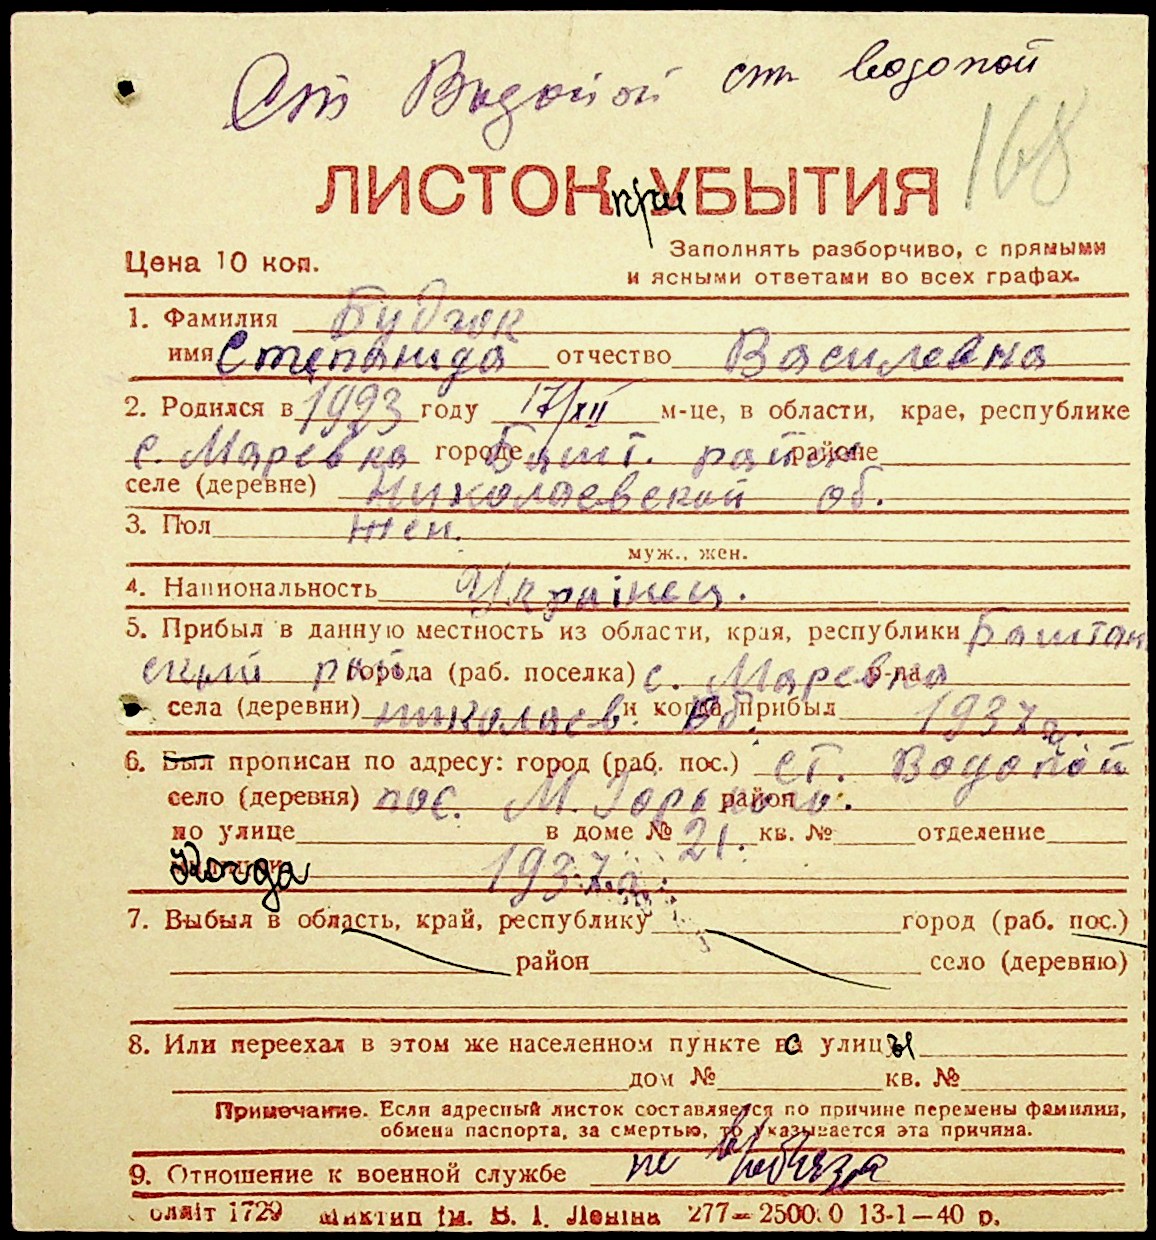 Ст Водопой ст водопой
168
ЛИСТОК при УБЫТИЯ
Цена 10 коп.
Заполнять разборчиво, с прямыми
и ясными ответами во всех графах.
1. Фамилия Будзюк
имя Степанида отчество Василевна
2. Родился в 1993 году 17/XII м-це, в области, крае, республике
с. Маревка городе Башт. район районе
селе (деревне) Николаевской об.
3. Пол жен.
муж., жен.
4. Национальность Українец.
5. Прибыл в данную местность из области, края, республики Баштан
ский рай города (раб. поселка) с. Маревка р-на
села (деревни) николаев. об. и когда прибыл 1937 г.
6. Был прописан по адресу: город (раб. пос.) ст. Водопой
село (деревня) пос. М. Горького. район
по улице в доме № 21. кв. № отделение
Когда 1937 г.
7. Выбыл в область, край, республику город (раб. пос.)
район село (деревню)
8. Или переехал в этом же населенном пункте с улицы
дом № кв. №
Примечание. Если адресный листок составляется по причине перемены фамилии,
обмена паспорта, за смертью, то указывается эта причина.
9. Отношение к военной службе не в/обяза
блліт 1729 Миктип ім. В. І. Леніна 277—25000 13-1—40 р.